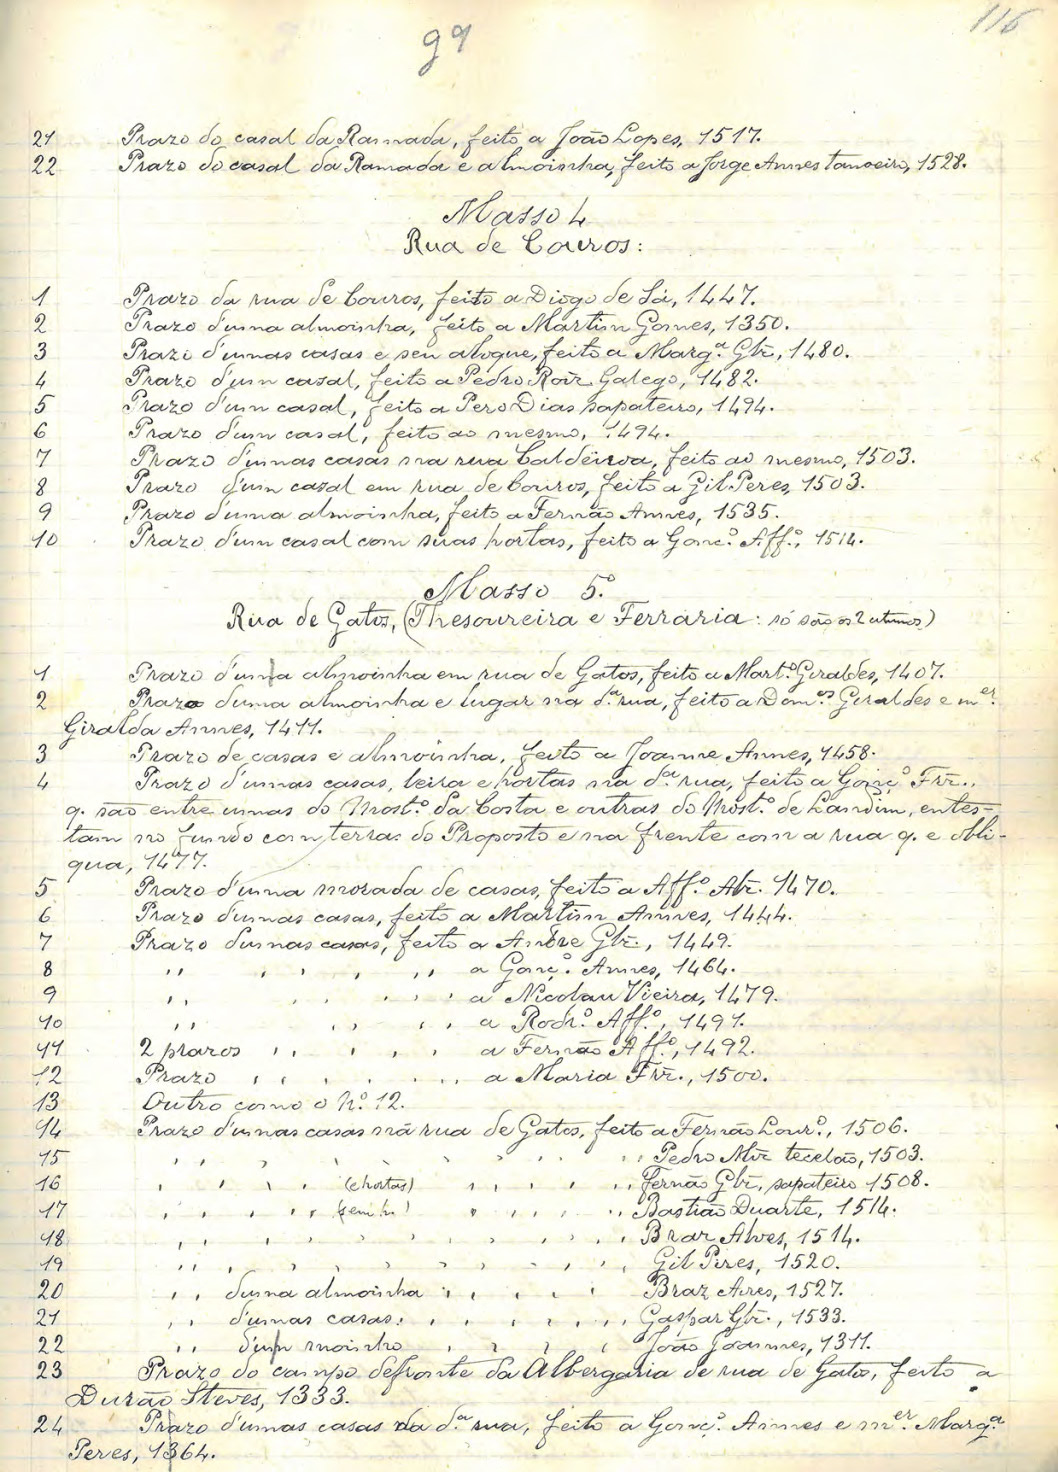 99
116
21 Prazo do casal da Ramada, feito a João Lopes, 1517.
22 Prazo do casal da Ramada e almoinha, feito a Jorge Annes tanoeiro, 1528.
Masso 4
Rua de Couros:
1 Prazo da rua de Couros, feito a Diogo de Sá, 1447.
2 Prazo d'uma almoinha, feito a Martim Gomes, 1350.
3 Prazo d'umas casas e seu alogue, feito a Marg.ª Glz, 1480.
4 Prazo d'um casal, feito a Pedro Roiz Galego, 1482.
5 Prazo d'um casal, feito a Pero Dias sapateiro, 1494.
6 Prazo d'um casal, feito ao mesmo, 1494.
7 Prazo d'umas casas na rua Caldeirôa, feito ao mesmo, 1503.
8 Prazo d'um casal em rua de Couros, feito a Gil Peres, 1503.
9 Prazo d'uma almoinha, feito a Fernão Annes, 1535.
10 Prazo d'um casal com suas hortas, feito a Gonç.º Aff.º, 1514.
Masso 5.º
Rua de Gatos, (Thesoureira e Ferraria: só são os 2 ultimos)
1 Prazo d'uma almoinha em rua de Gatos, feito a Mart.º Giraldes, 1407.
2 Prazo d'uma almoinha e lugar na d.ª rua, feito a Dom.ºˢ Giraldes e m.ᵉʳ
Giralda Annes, 1411.
3 Prazo de casas e almoinha, feito a Joanne Annes, 1458.
4 Prazo d'umas casas, leira e hortas na d.ª rua, feito a Gonç.º Frz.,
q. são entre umas do Most.º da Costa e outras do Most.º de Landim, entes-
tam no fundo com terras do Proposto e na frente com a rua q. e obli-
qua, 1477.
5 Prazo d'uma morada de casas, feito a Aff.º Alz. 1470.
6 Prazo d'umas casas, feito a Martim Annes, 1444.
7 Prazo d'umas casas, feito a André Glz., 1449.
8 " " " " " a Gonç.º Annes, 1464.
9 " " " " " a Nicolau Vieira, 1479.
10 " " " " a Rodr.º Aff.º, 1491.
11 2 prazos " " " " a Fernão Aff.º, 1492.
12 Prazo " " " " " a Maria Frz., 1500.
13 Outro como o N.º 12.
14 Prazo d'umas casas na rua de Gatos, feito a Fernão Lour.º, 1506.
15 " " " " " " " " Pedro Miz tecelão, 1503.
16 " " " " (e hortas) " " " " Fernão Glz, sapateiro 1508.
17 " " " " " " " " Bastião Duarte, 1514.
18 " " " " " " " " Braz Alves, 1514.
19 " " " " " " " " Gil Pires, 1520.
20 " " d'uma almoinha " " " " " Braz Aires, 1527.
21 " " d'umas casas " " " " " Gaspar Glz., 1533.
22 " " d'um moinho " " " " João Joannes, 1311.
23 Prazo do campo defronte da Albergaria de rua de Gatos, feito a
Durão Steves, 1333.
24 Prazo d'umas casas da d.ª rua, feito a Gonç.º Annes e m.ᵉʳ Marg.ª
Peres, 1364.